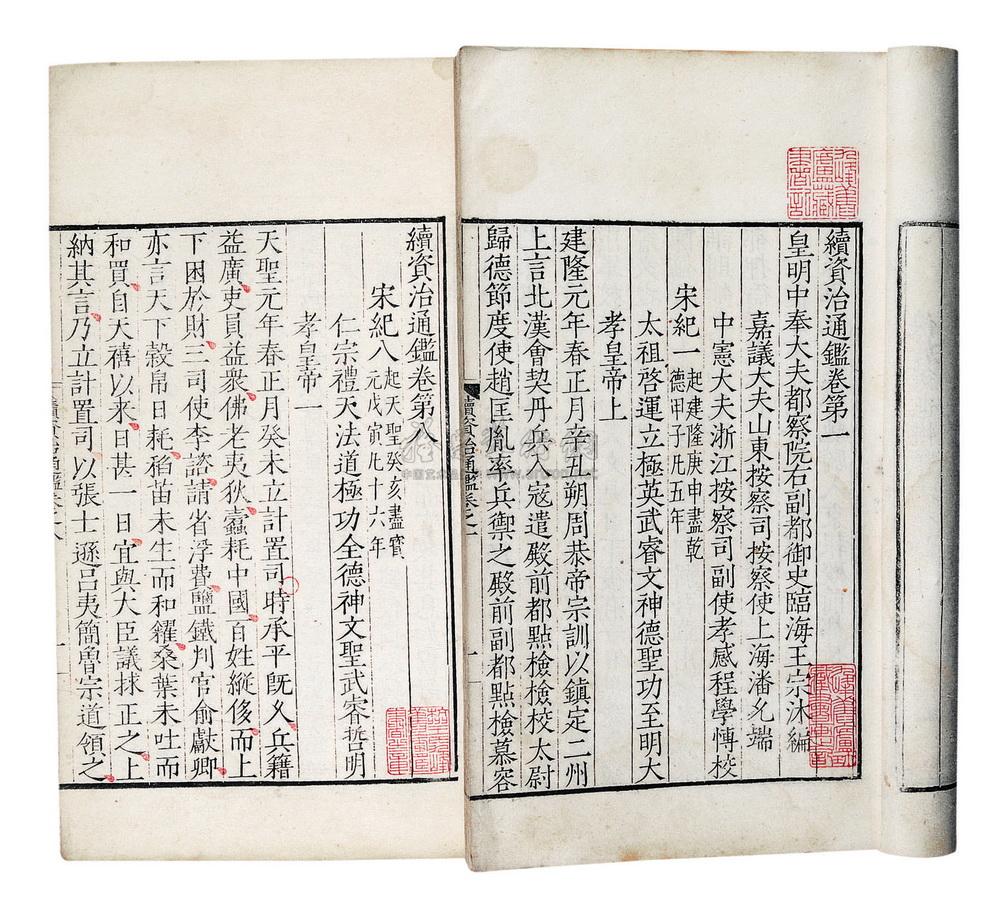 續資治通鑑卷第一
皇明中奉大夫都察院右副都御史臨海王宗沐編
嘉議大夫山東按察司按察使上海潘允端
中憲大夫浙江按察司副使孝感程學博校
宋紀一起建隆庚申盡乾
德甲子凡五年
太祖啓運立極英武睿文神德聖功至明大
孝皇帝上
建隆元年春正月辛丑朔周恭帝宗訓以鎮定二州
上言北漢會契丹兵入寇遣殿前都點檢檢校太尉
歸德節度使趙匡胤率兵禦之殿前副都點檢慕容
續資治通鑑卷之一
續資治通鑑卷第八
宋紀八起天聖癸亥盡寶
元戊寅凡十六年
仁宗禮天法道極功全德神文聖武睿哲明
孝皇帝一
天聖元年春正月癸未立計置司時承平既久兵籍
益廣吏員益衆佛老夷狄蠹耗中國百姓縱侈而上
下困於財三司使李諮請省浮費鹽鐵判官俞獻卿
亦言天下穀帛日耗稻苗未生而和糴桑葉未吐而
和買自天禧以來日甚一日宜與大臣議捄正之上
納其言乃立計置司以張士遜呂夷簡魯宗道領之
續資治通鑑卷之八